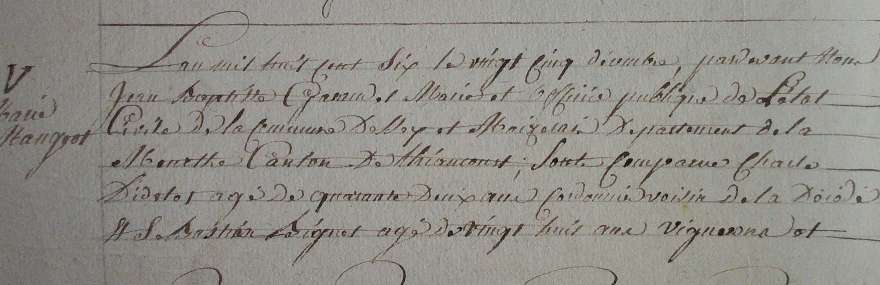 V
Marie
Mangeot
L'an mil huit cent Six le vingt Cinq décembre, pardevant Nous
Jean Baptiste maire et officié publique de L'etat
Civile De la commune De Rex et Maizerais Departement de la
Meurthe Canton De thiaucourt; Sont Comparue Charle
Didelot agé de quarante Deux ans Cordonnié voisin de la Décédé
et Sebastien agé de vingt huit ans vigneron et